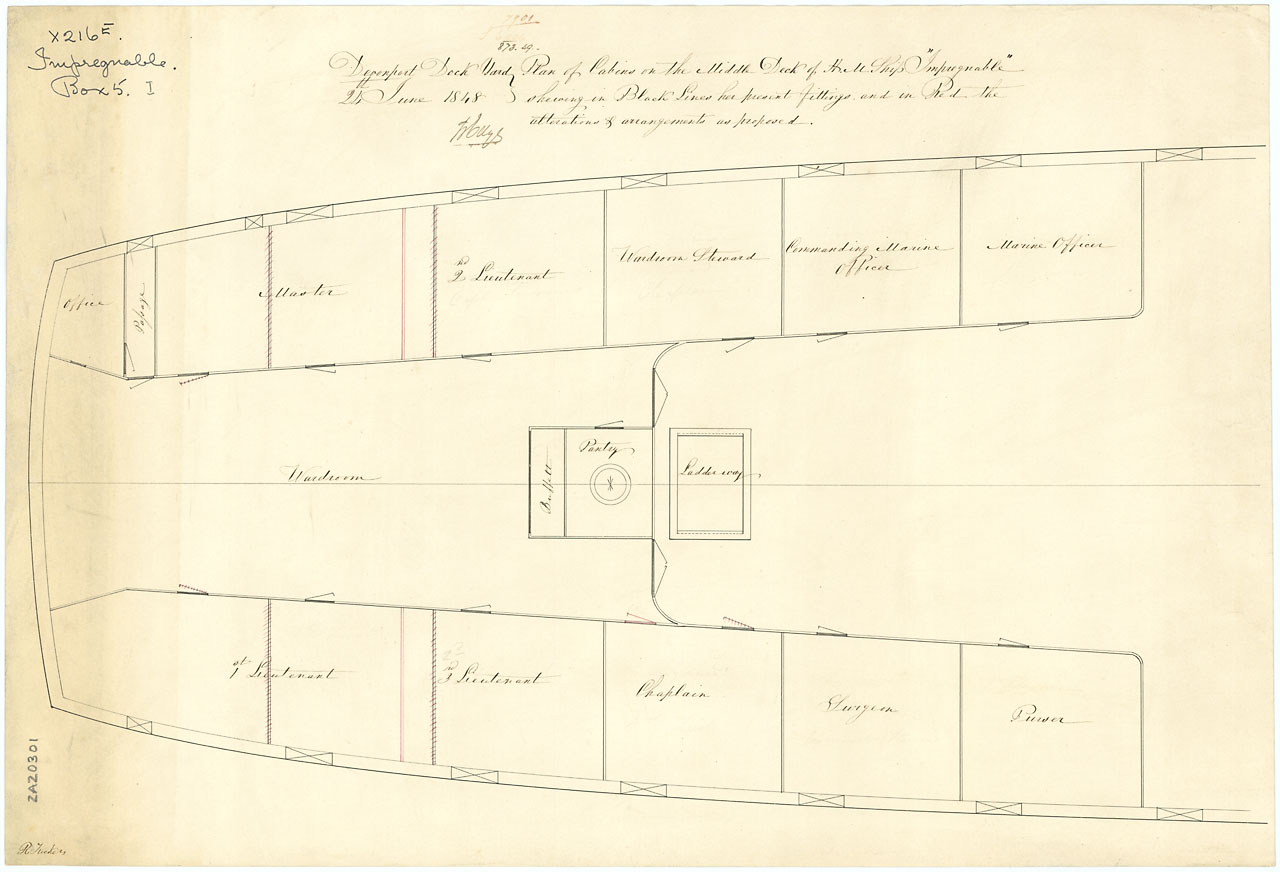 X216E
Impregnable.
Box 5. I
873. 49.
Devonport Dock Yard
24th June 1848
Plan of Cabins on the Middle Deck of H M Ship "Impregnable"
shewing in Black Lines her present fittings, and in Red the
alterations & arrangements as proposed.
Office
Passage
Master
2nd Lieutenant
Wardroom Steward
Commanding Marine
Officer
Marine Officer
Wardroom
Buffett
Pantry
Ladder way
1st Lieutenant
3rd Lieutenant
Chaplain
Surgeon
Purser
ZA20301